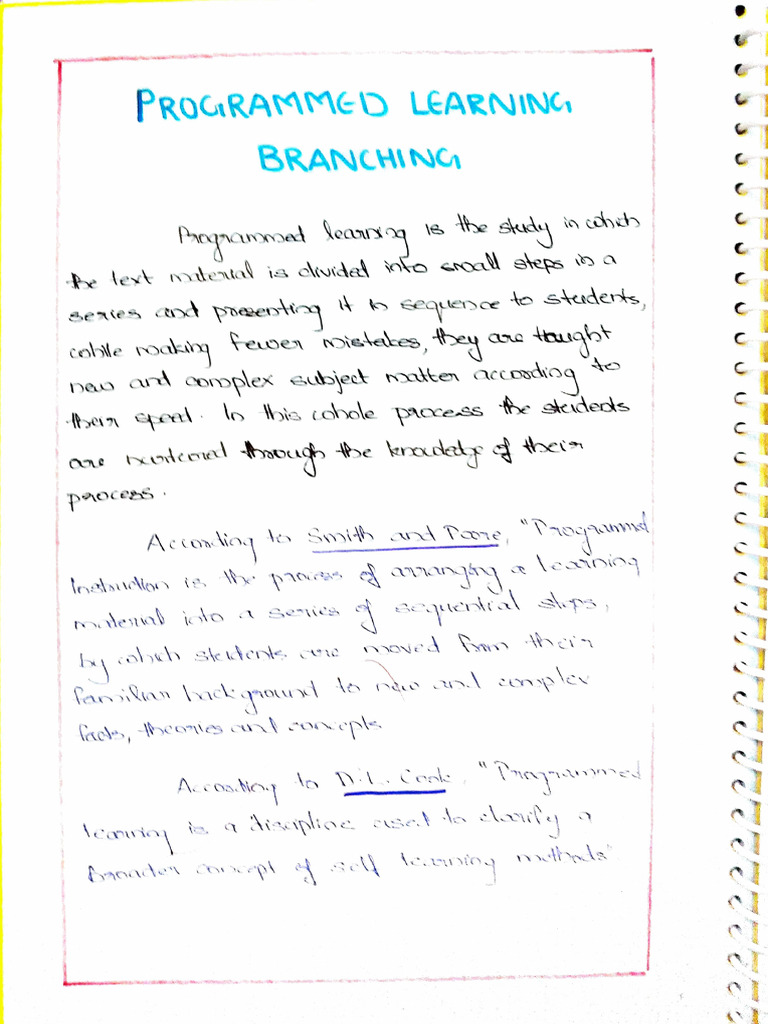 PROGRAMMED LEARNING
BRANCHING
Programmed learning is the study in which
the text material is divided into small steps in a
series and presenting it in sequence to students,
while making fewer mistakes, they are taught
new and complex subject matter according to
their speed. In this whole process the students
are through the knowledge of their
process.
According to Smith and Poore, "Programmed
Instruction is the process of arranging a learning
material into a series of sequential steps,
by which students are moved from their
familiar background to new and complex
facts, theories and concepts
According to D.L. Cook, "Programmed
learning is a discipline used to clarify a
Broader concept of self learning methods"